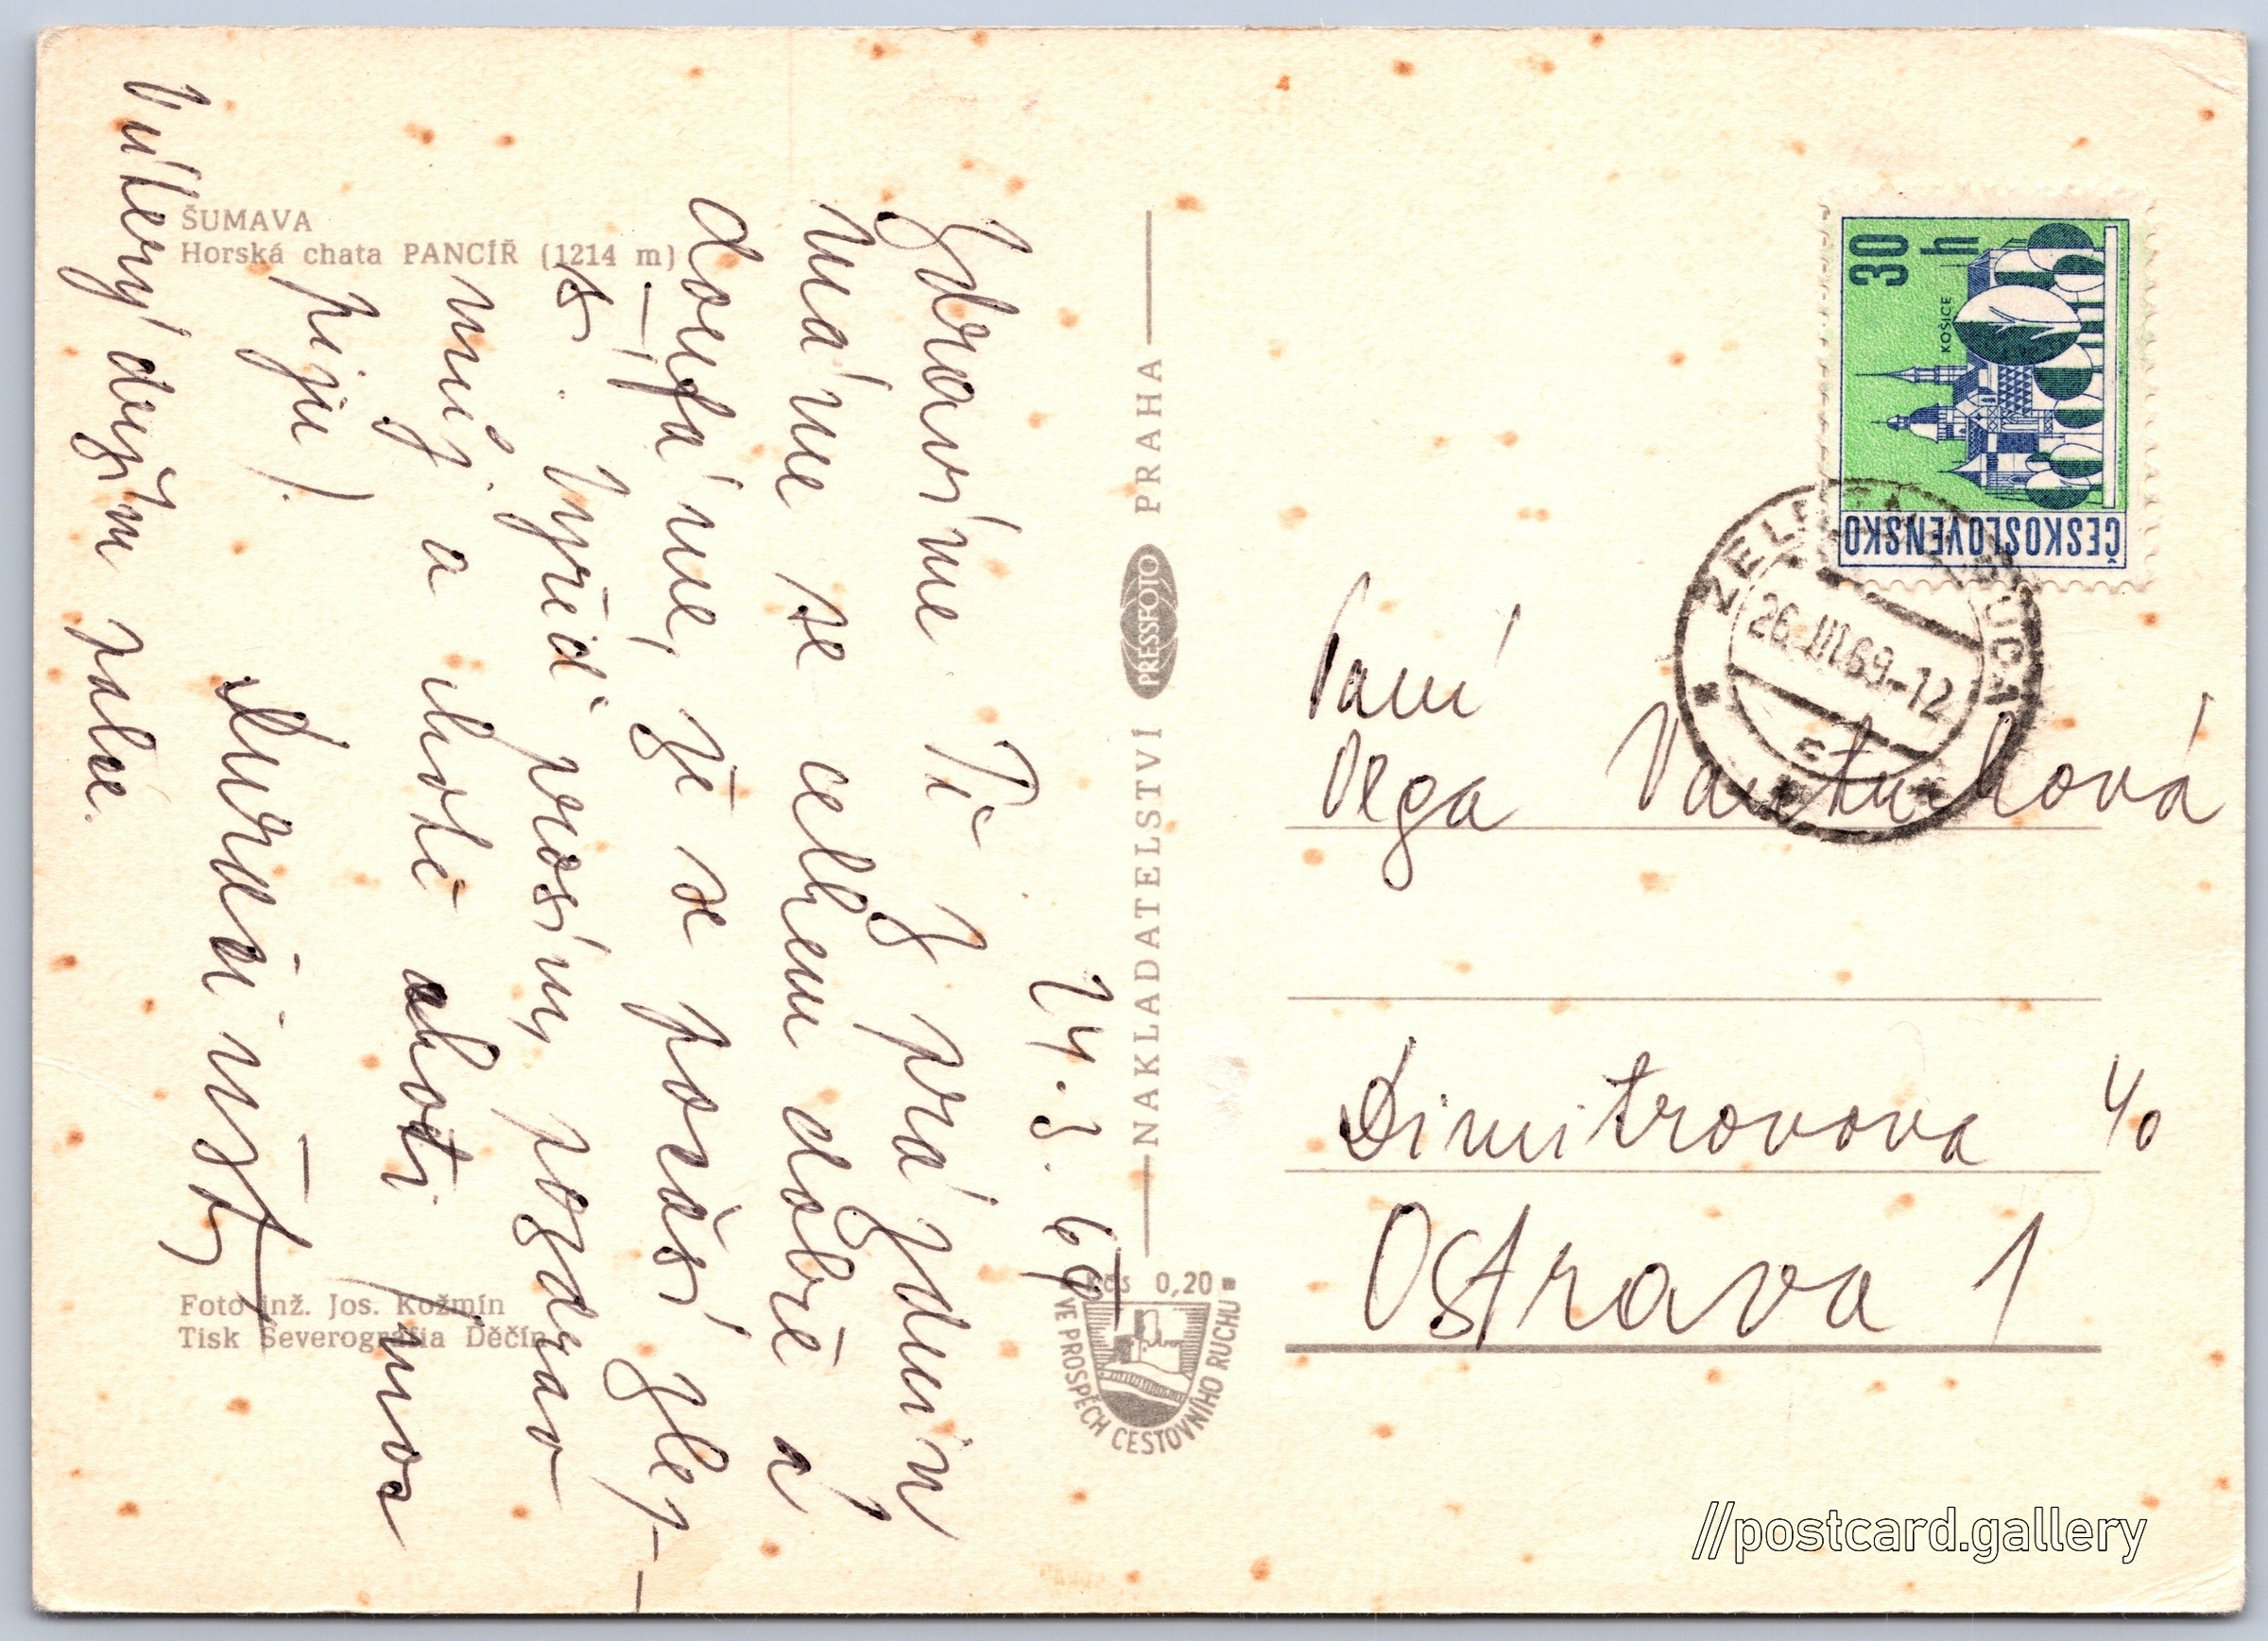 ŠUMAVA
Horská chata PANCÍŘ (1214 m)
24. 3. 69
Zdravíme Tě z prázdnin
máme se celkem dobře a
doufáme, že se počasí zlep-
-ší. Vyřiď prosím, pozdrav
můj a choti
piju).
všt
palce.
Foto inž. Jos. Kožmín
Tisk Severografia Děčín
NAKLADATELSTVÍ PRESSFOTO PRAHA
Kčs 0,20
VE PROSPĚCH CESTOVNÍHO RUCHU
30 h
KOŠICE
ČESKOSLOVENSKO
26.III.69-12
Paní
Olga Vantuchová
Dimitrovova 40
Ostrava 1
//postcard.gallery